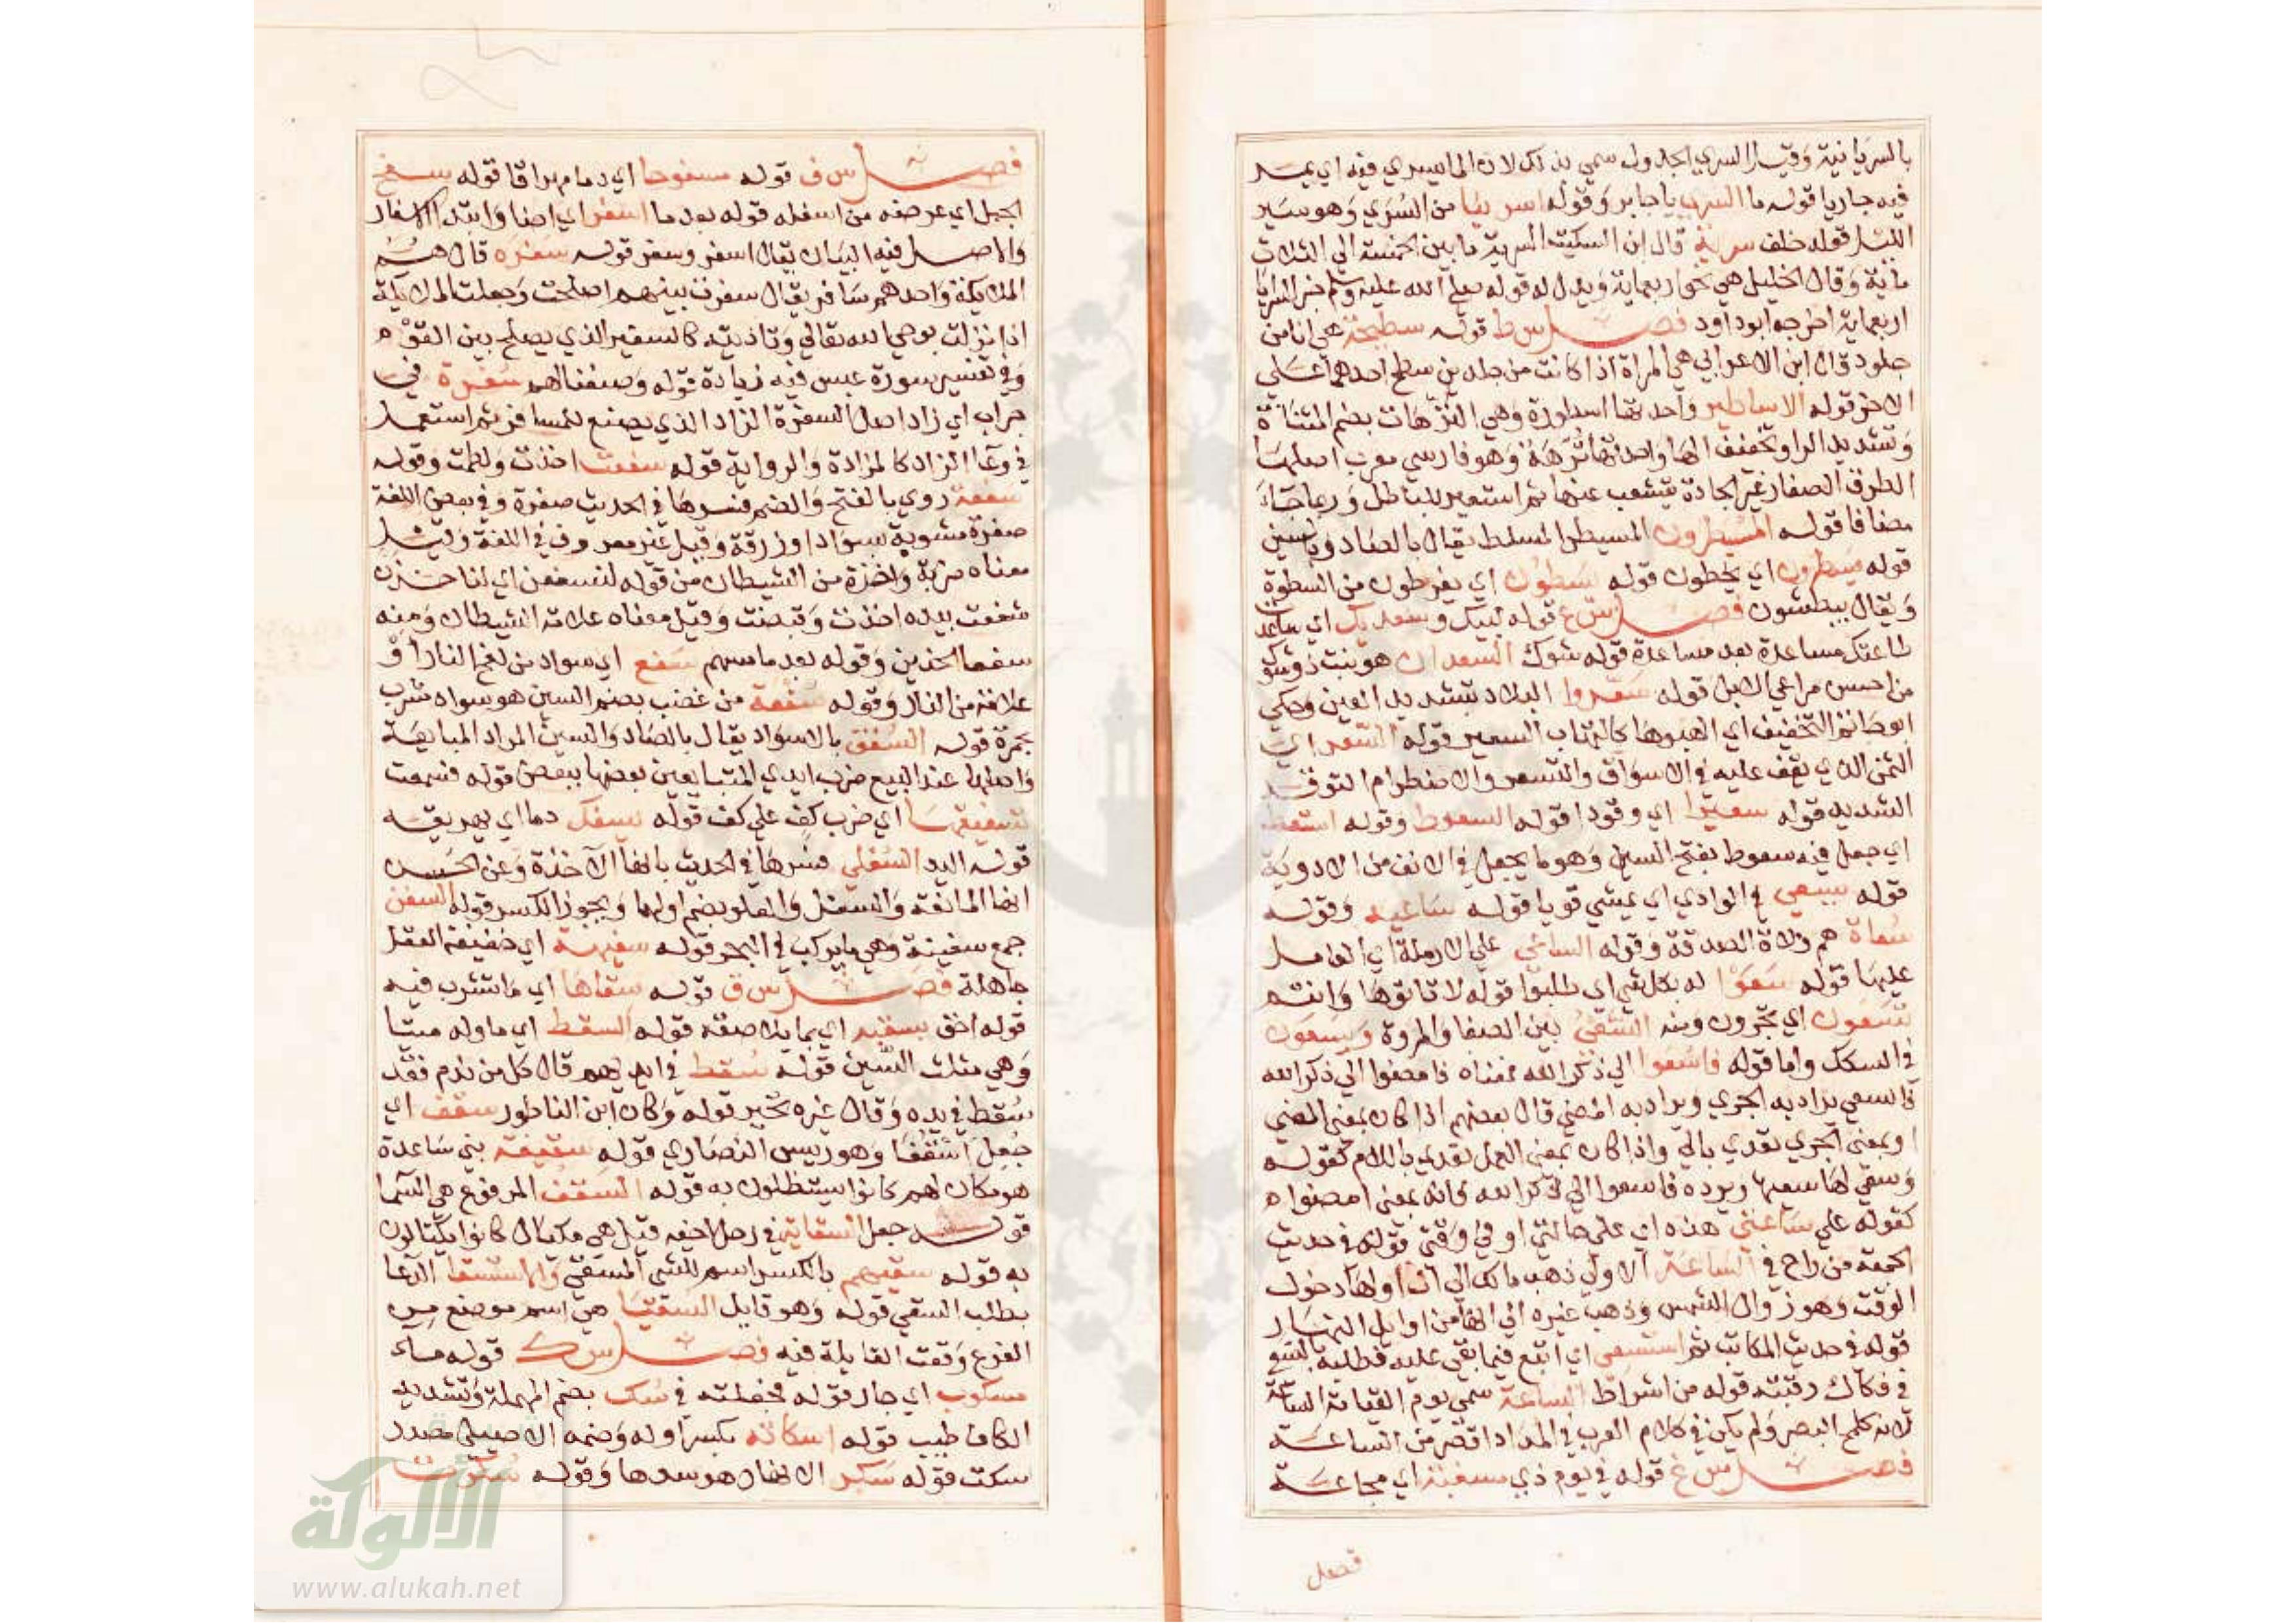 بالسريانية وقيل السري الجدول سمي بذلك لان الما يسري فيه اي يمد
فيه جاريا قوله ما السري يا جابر وقوله اسرينا من السُرَي وهو سير
الليل قوله خلف سرية قال ابن السكيت السرية ما بين الخمسة الي الثلاث
ماية وقال الخليل هي نحو اربعماية ويدل له قوله صلي الله عليه وسلم خير السرايا
اربعماية اخرجه ابو داود فصل س ط قوله سطيحة هي انا من
جلود قال ابن الاعرابي هي المزاة اذا كانت من جلدين سطح احدهما علي
الاخر قوله الاساطير واحدتها اسطورة وهي الترهات بضم المثناة
وتشديد الرا وتخفيف الها واحدتها تُرَّهَة وهو فارسي معرب اصلها
الطرق الصغار غير الجادة تتشعب عنها ثم استعير للباطل وربما جاء
مضافا قوله المسيطرون المسيطر المسلط يقال بالصاد وبالسين
قوله يسطرون اي يخطون قوله يسطون اي يفرطون من السطوة
ويقال يبطشون فصل س ع قوله لبيك وسعديك اي ساعدت
طاعتك مساعدة بعد مساعدة قوله شوك السعدان هو نبت ذو شوك
من احسن مراعي الابل قوله سعّروا البلاد بتشديد العين وحكي
ابو حاتم التخفيف اي الهبوها كالتهاب السعير قوله السعر اي
الثمن الذي يقف عليه في الاسواق والتسعر والاضطرام التوقد
الشديد قوله سعيرا اي وقودا قوله السعوط وقوله استعط
اي جعل فيه سعوط بفتح السين وهو ما يجعل في الانف من الادوية
قوله يسعي في الوادي اي يمشي قويا قوله ساعيه وقوله
سُعاة هم ولاة الصدقة وقوله الساعي علي الارملة اي العامل
عليها قوله سعوا له بكل شي اي طلبوا قوله لا تاتوها وانتم
تسعون اي تجرون ومنه السعي بين الصفا والمروة ويسعون
في السكك واما قوله فاسعوا الي ذكر الله فمعناه فامضوا الي ذكر الله
فالسعي يراد به الجري ويراد به المضي قال بعضهم اذا كان بمعني المضي
او بمعني الجري تعدي بالي واذا كان بمعني العمل تعدي باللام كقوله
وسعي لها سعيها ويرده فاسعوا الي ذكر الله فانه بمعني امضوا ه
كقوله علي ساعتي هذه اي علي حالتي او في وقتي قوله في حديث
الجمعة من راح في الساعة الاولي ذهب مالك الي ان اولها دخول
الوقت وهو زوال الشمس وذهب غيره الي انها من اوايل النهار
قوله في حديث المكاتب ثم استسعي اي اتبع فيما بقي عليه فطلبه بالسعي
في فكاك رقبته قوله من اشراط الساعة سمي يوم القيامة الساعة
لانه كلمح البصر ولم يكن في كلام العرب في المدد اقصر من الساعة
فصل س غ قوله في يوم ذي مسغبة اي مجاعة
فصل
فصل س ف قوله مسفوحا اي دما مهراقا قوله سفح
الجبل اي عرضه من اسفله قوله بعد ما اسفر اي اضا وابتدا الاسفار
والاصل فيه البيان يقال اسفر وسفر قوله سفرة قال هم
الملايكة واحدهم سافر يقال سفرت بينهم اصلحت وجعلت الملايكة
اذا نزلت بوحي الله تعالي وتاديته كالسفير الذي يصلح بين القوم
وفي تفسير سورة عبس فيه زيادة قوله وصنعنا لهم سفرة في
جراب اي زادا اصل السفرة الزاد الذي يصنع للمسافر ثم استعمل
في وعا الزاد كالمزادة والرواية قوله سفعت اخذت ولطمت وقوله
سفعة روي بالفتح والضم فسرها في الحديث صفرة وفي بعض اللغة
صفرة مشوبة بسواد او زرقة وقيل غير معروف في اللغة وقيل
معناه ضربة واخذة من الشيطان من قوله لنسفعن اي لناخذن
سفعت بيده اخذت وقبضت وقيل معناه علامة الشيطان ومنه
سفعا الخدين وقوله بعد ما مسهم سفع اي سواد من لفح النار او
علامة من النار وقوله سُفعة من غضب بضم السين هو سواد مشرب
بحمرة قوله السفق بالاسواق يقال بالصاد والسين المراد المبايعة
واصلها عند البيع ضرب ايدي المتبايعين بعضها ببعض قوله فسمعت
تسفيقها اي ضرب كف علي كف قوله يسفك دما اي يهريقه
قوله اليد السفلي فسرها في الحديث بانها الآخذة وعن الحسن
انها المانعة والسفل والعلو بضم اولهما ويجوز الكسر قوله السفن
جمع سفينة وهي ما يركب في البحر قوله سفيهة اي خفيفة العقل
جاهلة فصل س ق قوله سقاها اي ما تشرب فيه
قوله احق بسقبه اي بما يلاصقه قوله السقط اي ما ولد ميتا
وهي مثلث السين قوله سُقط في ايديهم قال كل من ندم فقد
سُقط في يده وقال غيره تحير قوله وكان ابن الناطور سقف اي
جُعِلَ اُسْقُفًا وهو رييس النصاري قوله سقيفة بني ساعدة
هو مكان لهم كانوا يستظلون به قوله السقف المرفوع هي السما
قوله جعل السقاية في رحل اخيه قيل هي مكيال كانوا يكتالون
به قوله سقيهم بالكسر اسم للشي المسقي والاستسقا الدعا
بطلب السقي قوله وهو قايل السقيا هي اسم موضع من
الفرع وقعت القايلة فيه فصل س ك قوله ماء
مسكوب اي جار قوله فجعلته في سُك بضم المهملة وتشديد
الكاف طيب قوله اسكاته بكسر اوله وضمه الاصيلي مصدر
سكت قوله سكر الانهار هو سدها وقوله سُكِّرت
الألوكة
www.alukah.net